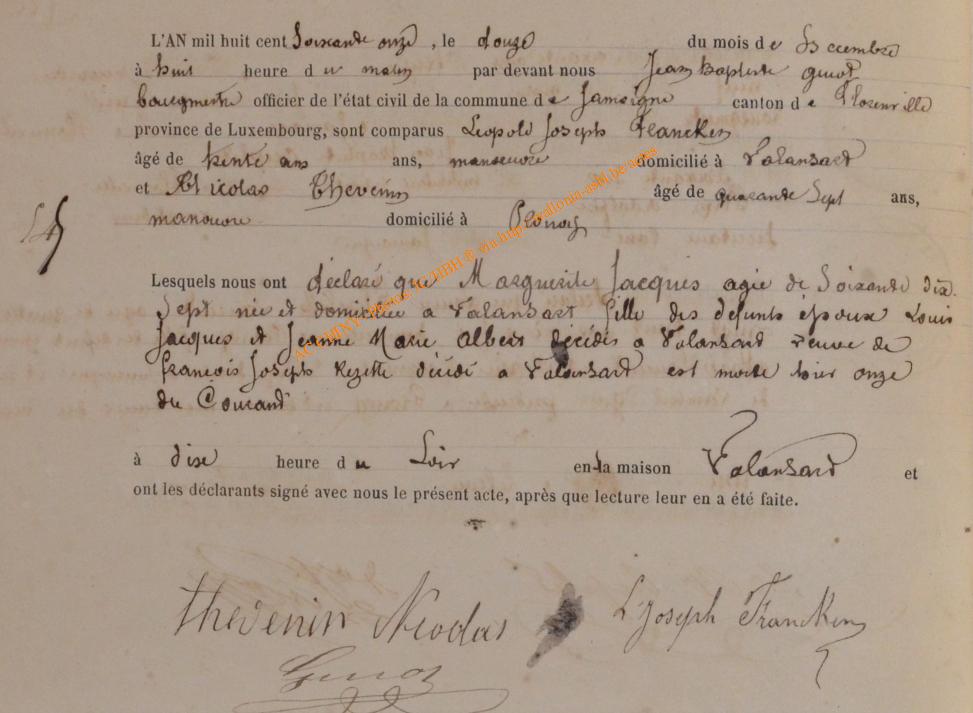 L'AN mil huit cent Soixante onze, le douze du mois de Décembre
à huit heure du matin par devant nous Jean Baptiste guiot
bourgmestre officier de l'état civil de la commune de Jamoigne canton de Florenville
province de Luxembourg, sont comparus Léopold Joseph Francken
âgé de trente ans ans, manoeuvre domicilié à Valansart
et Nicolas Thevenin âgé de quarante Sept ans,
manouvre domicilié à
Lesquels nous ont déclaré que Marguerite Jacques agée de Soixante dix
Sept née et domiciliée a Valansart fille des défunts époux Louis
Jacques et Jeanne Marie Albert décédés a Valansart veuve de
françois Joseph Rezette décédé a Valansart est morte hier onze
du Courant
à dixe heure du Soir en la maison Valansard et
ont les déclarants signé avec nous le présent acte, après que lecture leur en a été faite.
thevenin Nicolas L Joseph Francken
Guiot